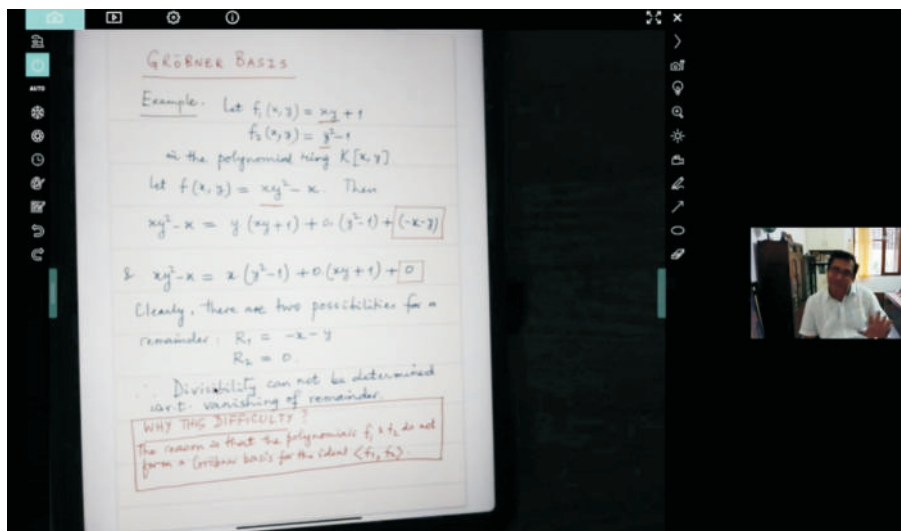 AUTO
GRÖBNER BASIS
Example. Let f₁(x, y) = xy + 1
f₂(x, y) = y² - 1
in the polynomial ring K[x, y]
Let f(x, y) = xy² - x. Then
xy² - x = y (xy + 1) + 0 · (y² - 1) + (-x - y)
& xy² - x = x (y² - 1) + 0 (xy + 1) + 0
Clearly, there are two possibilities for a
remainder : R₁ = -x - y
R₂ = 0.
∴ Divisibility can not be determined
w.r.t. vanishing of remainder.
WHY THIS DIFFICULTY ?
The reason is that the polynomials f₁ & f₂ do not
form a Gröbner basis for the ideal <f₁, f₂>.